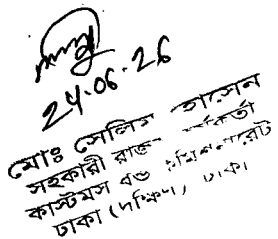 24.06.26
মোঃ সেলিম হোসেন
সহকারী রাজস্ব কর্মকর্তা
কাস্টমস বন্ড কমিশনারেট
ঢাকা (দক্ষিণ), ঢাকা।